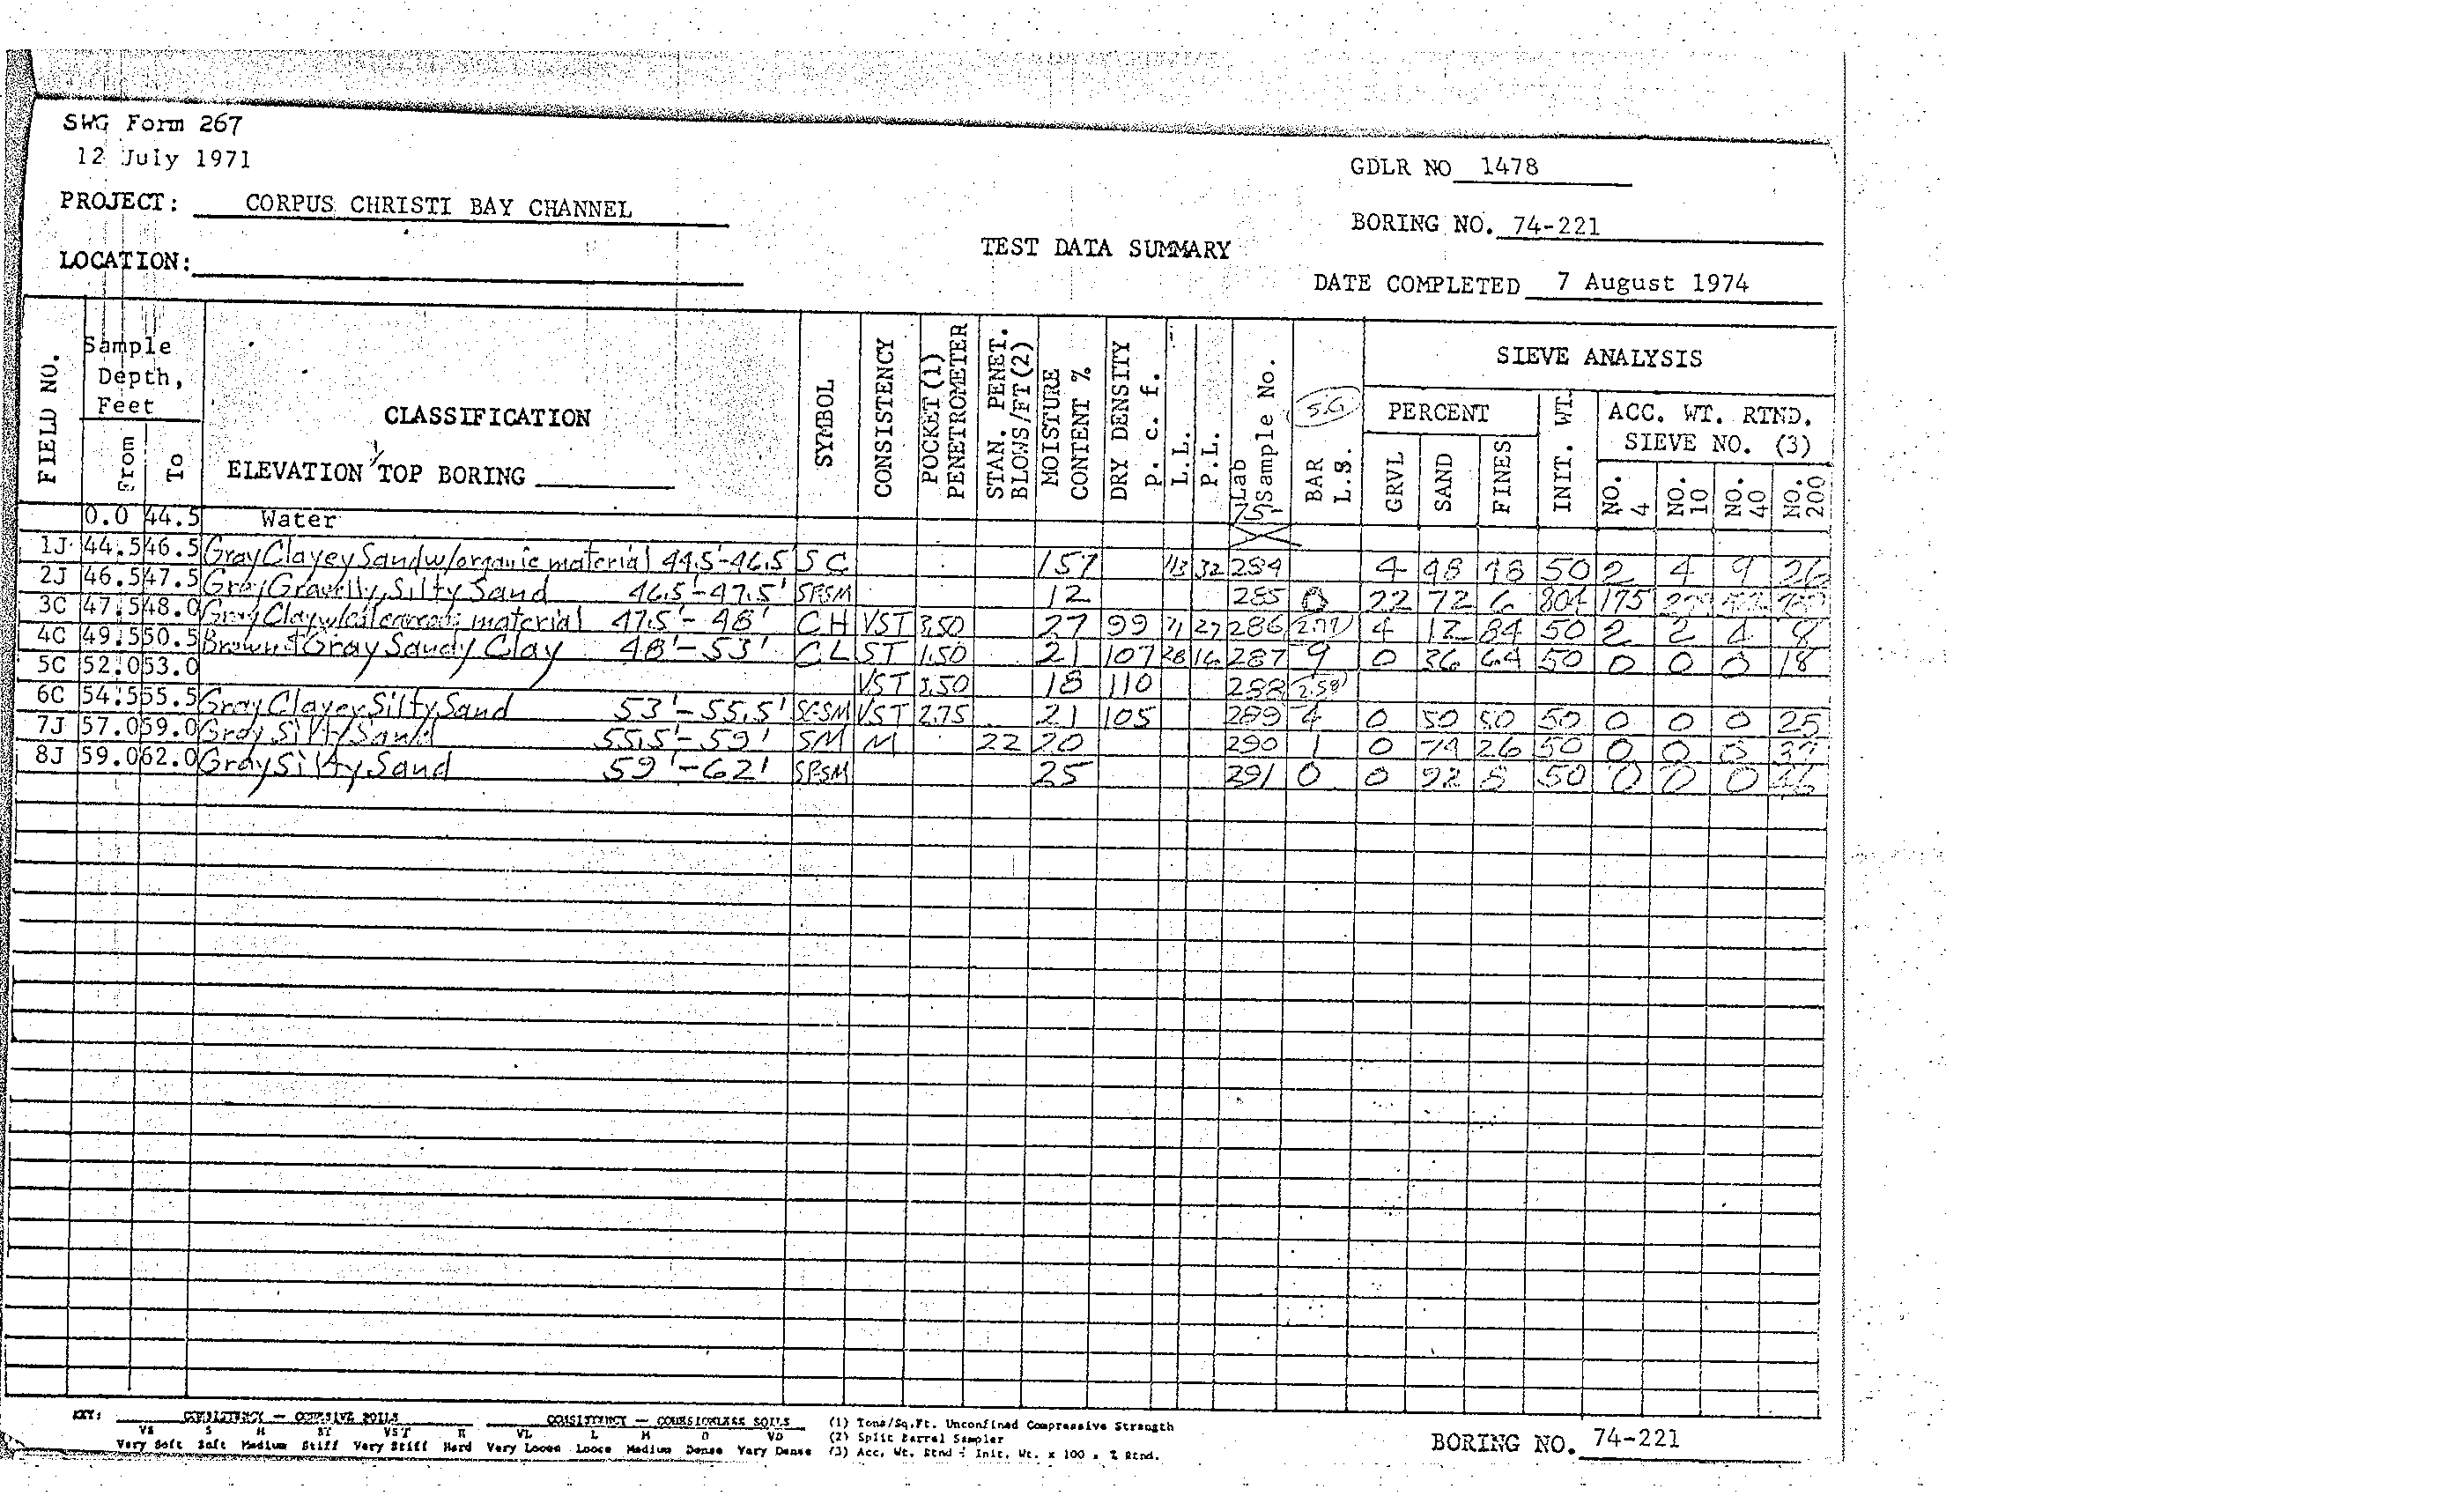 SWG Form 267
12 July 1971
GDLR NO 1478
PROJECT: CORPUS CHRISTI BAY CHANNEL
BORING NO. 74-221
TEST DATA SUMMARY
LOCATION:
DATE COMPLETED 7 August 1974
FIELD NO.
Sample Depth, Feet
From
To
CLASSIFICATION
ELEVATION TOP BORING
SYMBOL
CONSISTENCY
POCKET (1) PENETROMETER
STAN. PENET. BLOWS/FT (2)
MOISTURE CONTENT %
DRY DENSITY p. c. f.
L.L.
P.L.
Lab Sample No.
75-
SG
BAR L.S.
SIEVE ANALYSIS
PERCENT
GRVL
SAND
FINES
INIT. WT.
ACC. WT. RTND. SIEVE NO. (3)
NO. 4
NO. 10
NO. 40
NO. 200
0.0 44.5 Water
1J 44.5 46.5 Gray Clayey Sand w/organic material 44.5'-46.5' SC 157 113 32 284 4 48 48 50 2 4 9 26
2J 46.5 47.5 Gray Gravelly, Silty Sand 46.5'-47.5' SP-SM 12 285 0 22 72 6 175
3C 47.5 48.0 Gray Clay material 47.5'-48' CH VST 3.50 27 99 71 27 286 4 12 84 50 2 2 4 8
4C 49.5 50.5 Brown & Gray Sandy Clay 48'-53' CL ST 1.50 21 107 28 16 287 9 0 36 64 50 0 0 0 18
5C 52.0 53.0 VST 18 110 288 2.58
6C 54.5 55.5 Gray Clayey Silty Sand 53'-55.5' SC-SM VST 2.75 21 105 289 4 0 50 50 50 0 0 0 25
7J 57.0 59.0 Gray Silty Sand 55.5'-59' SM M 22 20 290 1 0 74 26 50 0 0 0 37
8J 59.0 62.0 Gray Silty Sand 59'-62' SP-SM 25 291 0 0 92 8 50 0 0 0 46
KEY: CONSISTENCY — COHESIVE SOILS CONSISTENCY — COHESIONLESS SOILS (1) Tons/Sq.Ft. Unconfined Compressive Strength
VS S M ST VST H VL L M D VD (2) Split Barrel Sampler
Very Soft Soft Medium Stiff Very Stiff Hard Very Loose Loose Medium Dense Very Dense (3) Acc. Wt. Rtnd ÷ Init. Wt. x 100 = % Rtnd.
BORING NO. 74-221